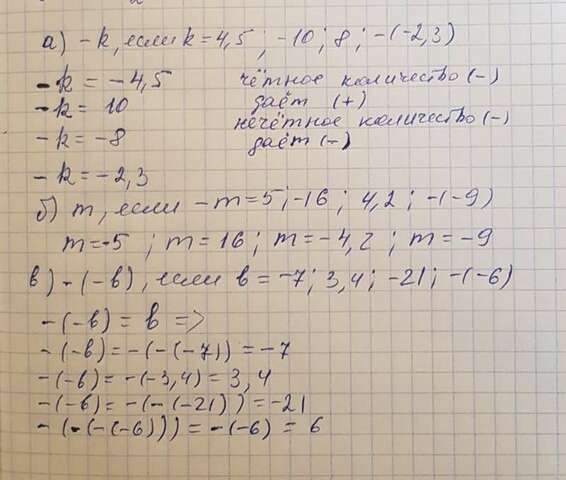 а) -k, если k=4,5 ; -10; 8; -(-2,3)
-k = -4,5 чётное количество (-)
-k = 10 даёт (+)
нечётное количество (-)
-k = -8 даёт (-)
-k = -2,3
б) m, если -m=5; -16; 4,2; -(-9)
m=-5 ; m=16; m=-4,2; m=-9
в) -(-в), если в=-7; 3,4; -21; -(-6)
-(-в) = в =>
-(-в) = -(-(-7)) = -7
-(-в) = -(-3,4) = 3,4
-(-в) = -(-(-21)) = -21
-(-(-(-6))) = -(-6) = 6